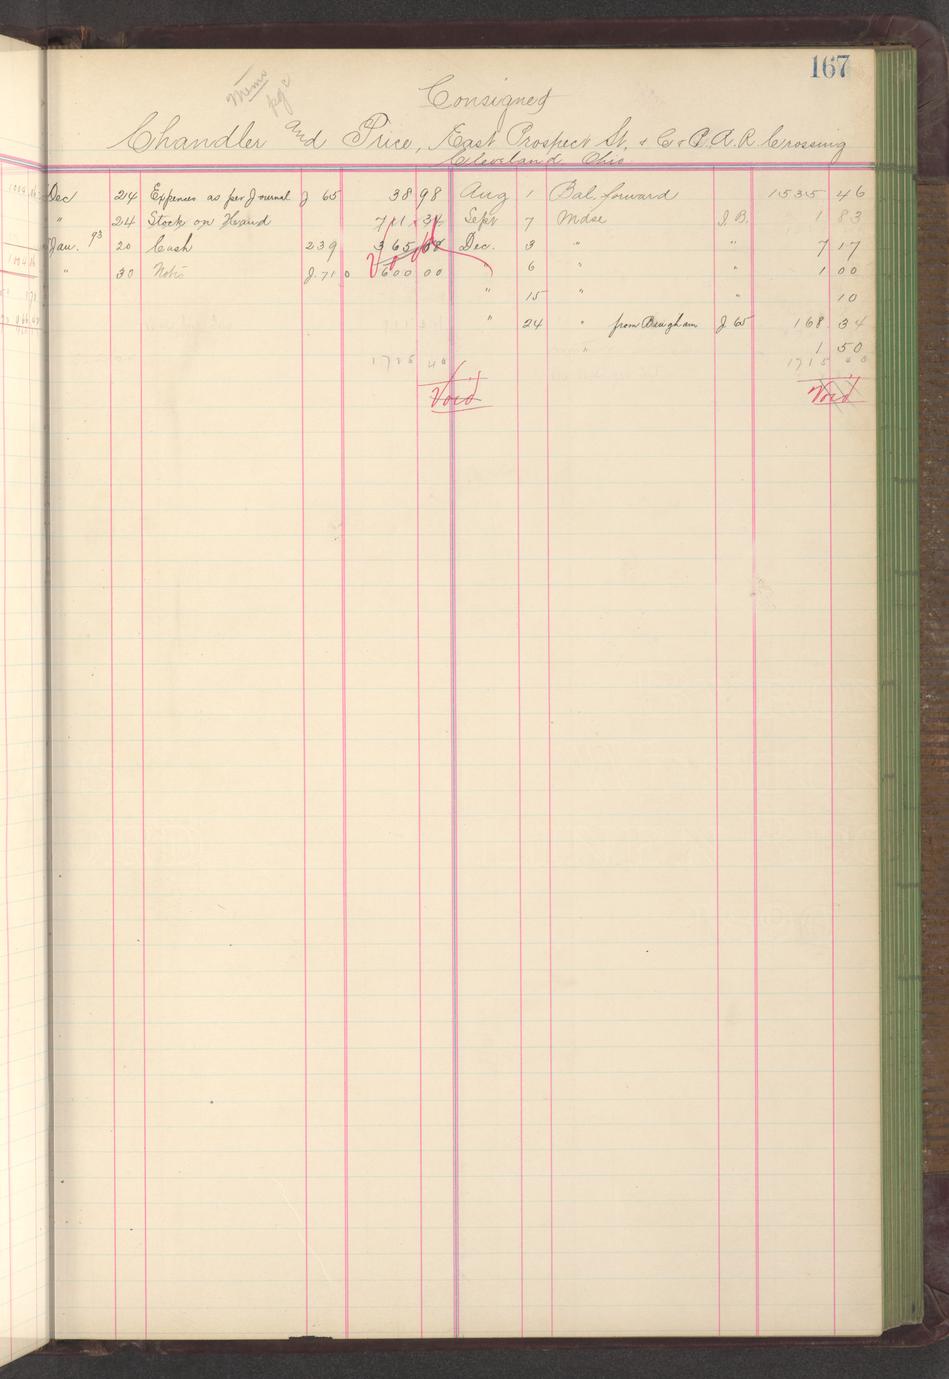 167
Memo
pg 2
Consigned
Chandler and Price, East Prospect St. & C & P. R. R. Crossing
Cleveland Ohio
Dec 24 Expenses as per Journal J 65 38 98
" 24 Stock on Hand 711 34
Jan. 93 20 Cash 239 365
" 30 Note J. 71 600 00
1715 40
Void
Void
Aug 1 Bal. forward 1535 46
Sept 7 Mdse J. B. 1 83
Dec. 3 " " 7 17
" 6 " " 1 00
" 15 " " 10
" 24 " from Baugham J 65 168 34
" 1 50
1715 40
Void